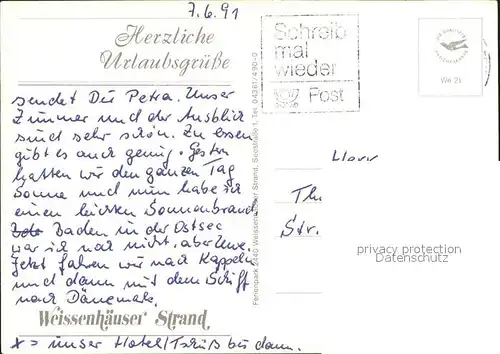 7.6.91
Herzliche
Urlaubsgrüße
sendet Dir Petra. Unser
Zimmer und der Ausblick
sind sehr schön. Zu essen
gibt es auch genug. Gestern
hatten wir den ganzen Tag
Sonne und nun habe ich
einen leichten Sonnenbrand
Baden in der Ostsee
war ich noch nicht, aber Uwe.
Jetzt fahren wir nach Kappeln
und dann mit dem Schiff
nach Dänemark.
Weissenhäuser Strand
x = unser Hotel/Tschüß bis dann.
Ferienpark 2440 Weissenhäuser Strand, Seestraße 1, Tel. 04361/490-0
Schreib
mal
wieder
Post
We 21
Herrn
Th
Str.
privacy protection
Datenschutz